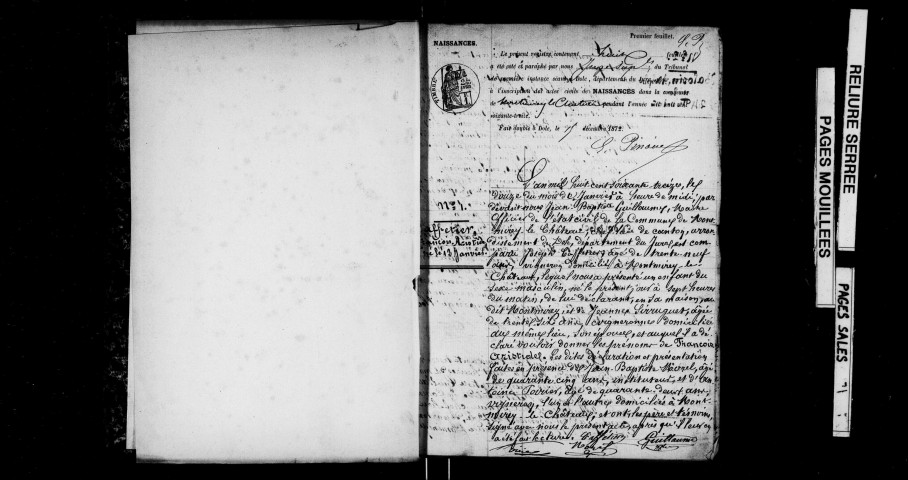 Premier feuillet.
NAISSANCES.
Le présent registre, contenant
a été coté et paraphé par nous Juge du Tribunal
de première instance séant à Dole, département du
à l'inscription des actes civils des NAISSANCES dans la commune
de Montmirey le Château pendant l'année mil huit cent
soixante-treize.
Fait double à Dole, le décembre 1872.
N° 1.
François Aristide
né le 12 Janvier
L'an mil huit cent soixante treize, le
douze du mois de Janvier à heure de midi, par
devant nous Jean Baptiste Guillaume, Maire
Officier de l'état civil de la Commune de Mont
mirey le Château, de canton, arron
dissement de Dole, département du Jura, est com
paru Joseph âgé de trente neuf
ans, vigneron domicilié à Montmirey le
Château, lequel nous a présenté un enfant du
sexe masculin, né le présent jour à sept heures
du matin, de lui déclarant, en sa maison, au
dit Montmirey, et de Jeanne Serruquet, âgée
de trente six ans, vigneronne domiciliée
au même lieu, son épouse, et auquel il a dé
claré vouloir donner les prénoms de François
Aristide. Les dites déclaration et présentation
faites en présence de Jean Baptiste âgé
de quarante cinq ans, instituteur, et d'An
toine Poirier, âgé de quarante deux ans,
vigneron, l'un et l'autre domiciliés à Mont
mirey le Château, et ont, les père et témoins,
signé avec nous le présent acte, après qu'il leur en
a été fait lecture.
Guillaume
RELIURE SERREE
PAGES MOUILLEES
PAGES SALES